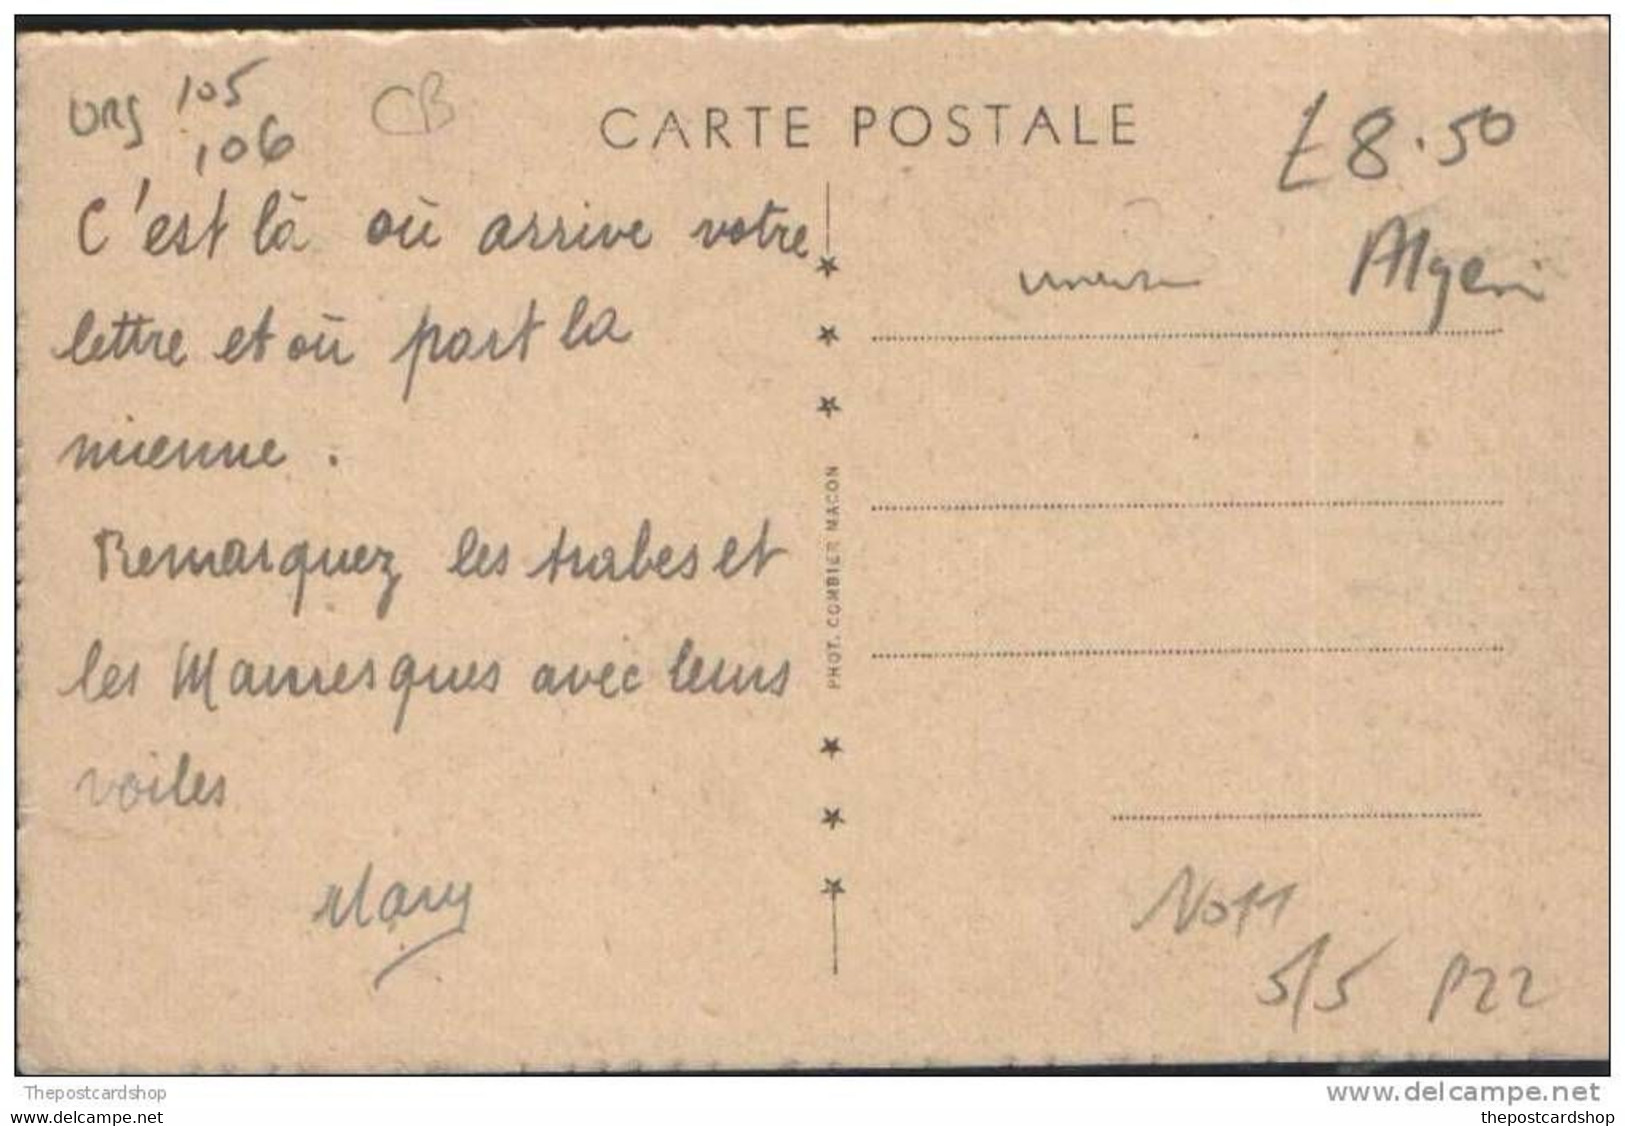 URS 105
106
CB
CARTE POSTALE
£8.50
Algeri
C'est là où arrive votre
lettre et où part la
mienne.
Remarquez les arabes et
les Mauresques avec leurs
voiles
Mary
PHOT. COMBIER MACON
5/5 P22
Thepostcardshop
thepostcardshop.com
www.delcampe.net
thepostcardshop